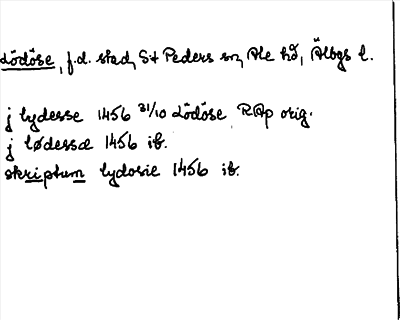 Lödöse, f.d. stad, S:t Peders sn, Ale hd, Älvbgs l.
j lydesse 1456 31/10 Lödöse RAp orig.
j lødessæ 1456 ib.
skriptum lydosie 1456 ib.